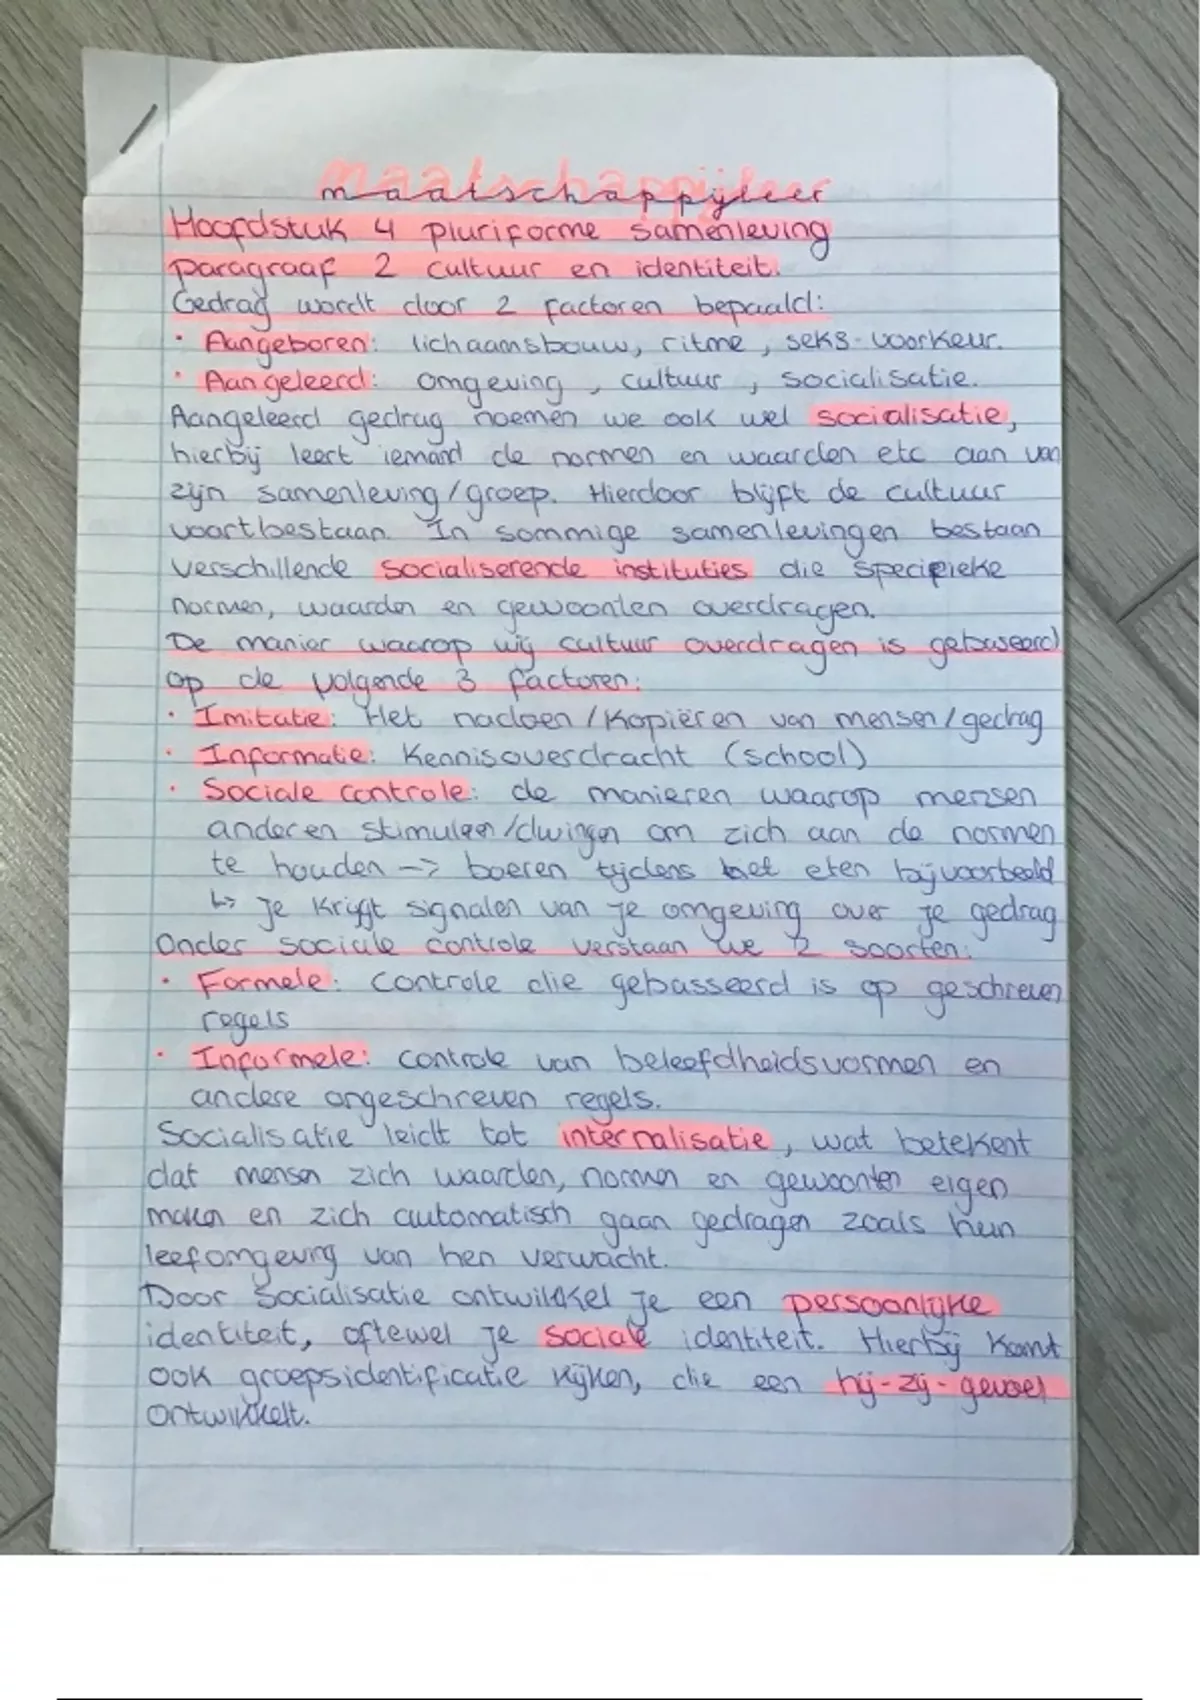 maatschappijleer
Hoofdstuk 4 pluriforme samenleving
paragraaf 2 cultuur en identiteit.
Gedrag wordt door 2 factoren bepaald:
· Aangeboren: lichaamsbouw, ritme, seks-voorkeur.
· Aangeleerd: omgeving, cultuur, socialisatie.
Aangeleerd gedrag noemen we ook wel socialisatie,
hierbij leert iemand de normen en waarden etc aan van
zijn samenleving/groep. Hierdoor blijft de cultuur
voortbestaan. In sommige samenlevingen bestaan
verschillende socialiserende instituties die specifieke
normen, waarden en gewoonten overdragen.
De manier waarop wij cultuur overdragen is gebaseerd
op de volgende 3 factoren:
· Imitatie: Het nadoen/kopiëren van mensen/gedrag
· Informatie: Kennisoverdracht (school)
· Sociale controle: de manieren waarop mensen
anderen stimuleren/dwingen om zich aan de normen
te houden -> boeren tijdens het eten bijvoorbeeld
↳ je krijgt signalen van je omgeving over je gedrag
Onder sociale controle verstaan we 2 soorten:
· Formele: Controle die gebasseerd is op geschreven
regels
· Informele: controle van beleefdheidsvormen en
andere ongeschreven regels.
Socialisatie leidt tot internalisatie, wat betekent
dat mensen zich waarden, normen en gewoonten eigen
maken en zich automatisch gaan gedragen zoals hun
leefomgeving van hen verwacht.
Door Socialisatie ontwikkel je een persoonlijke
identiteit, oftewel je sociale identiteit. Hierbij komt
ook groepsidentificatie kijken, die een hij-zij-gevoel
ontwikkelt.